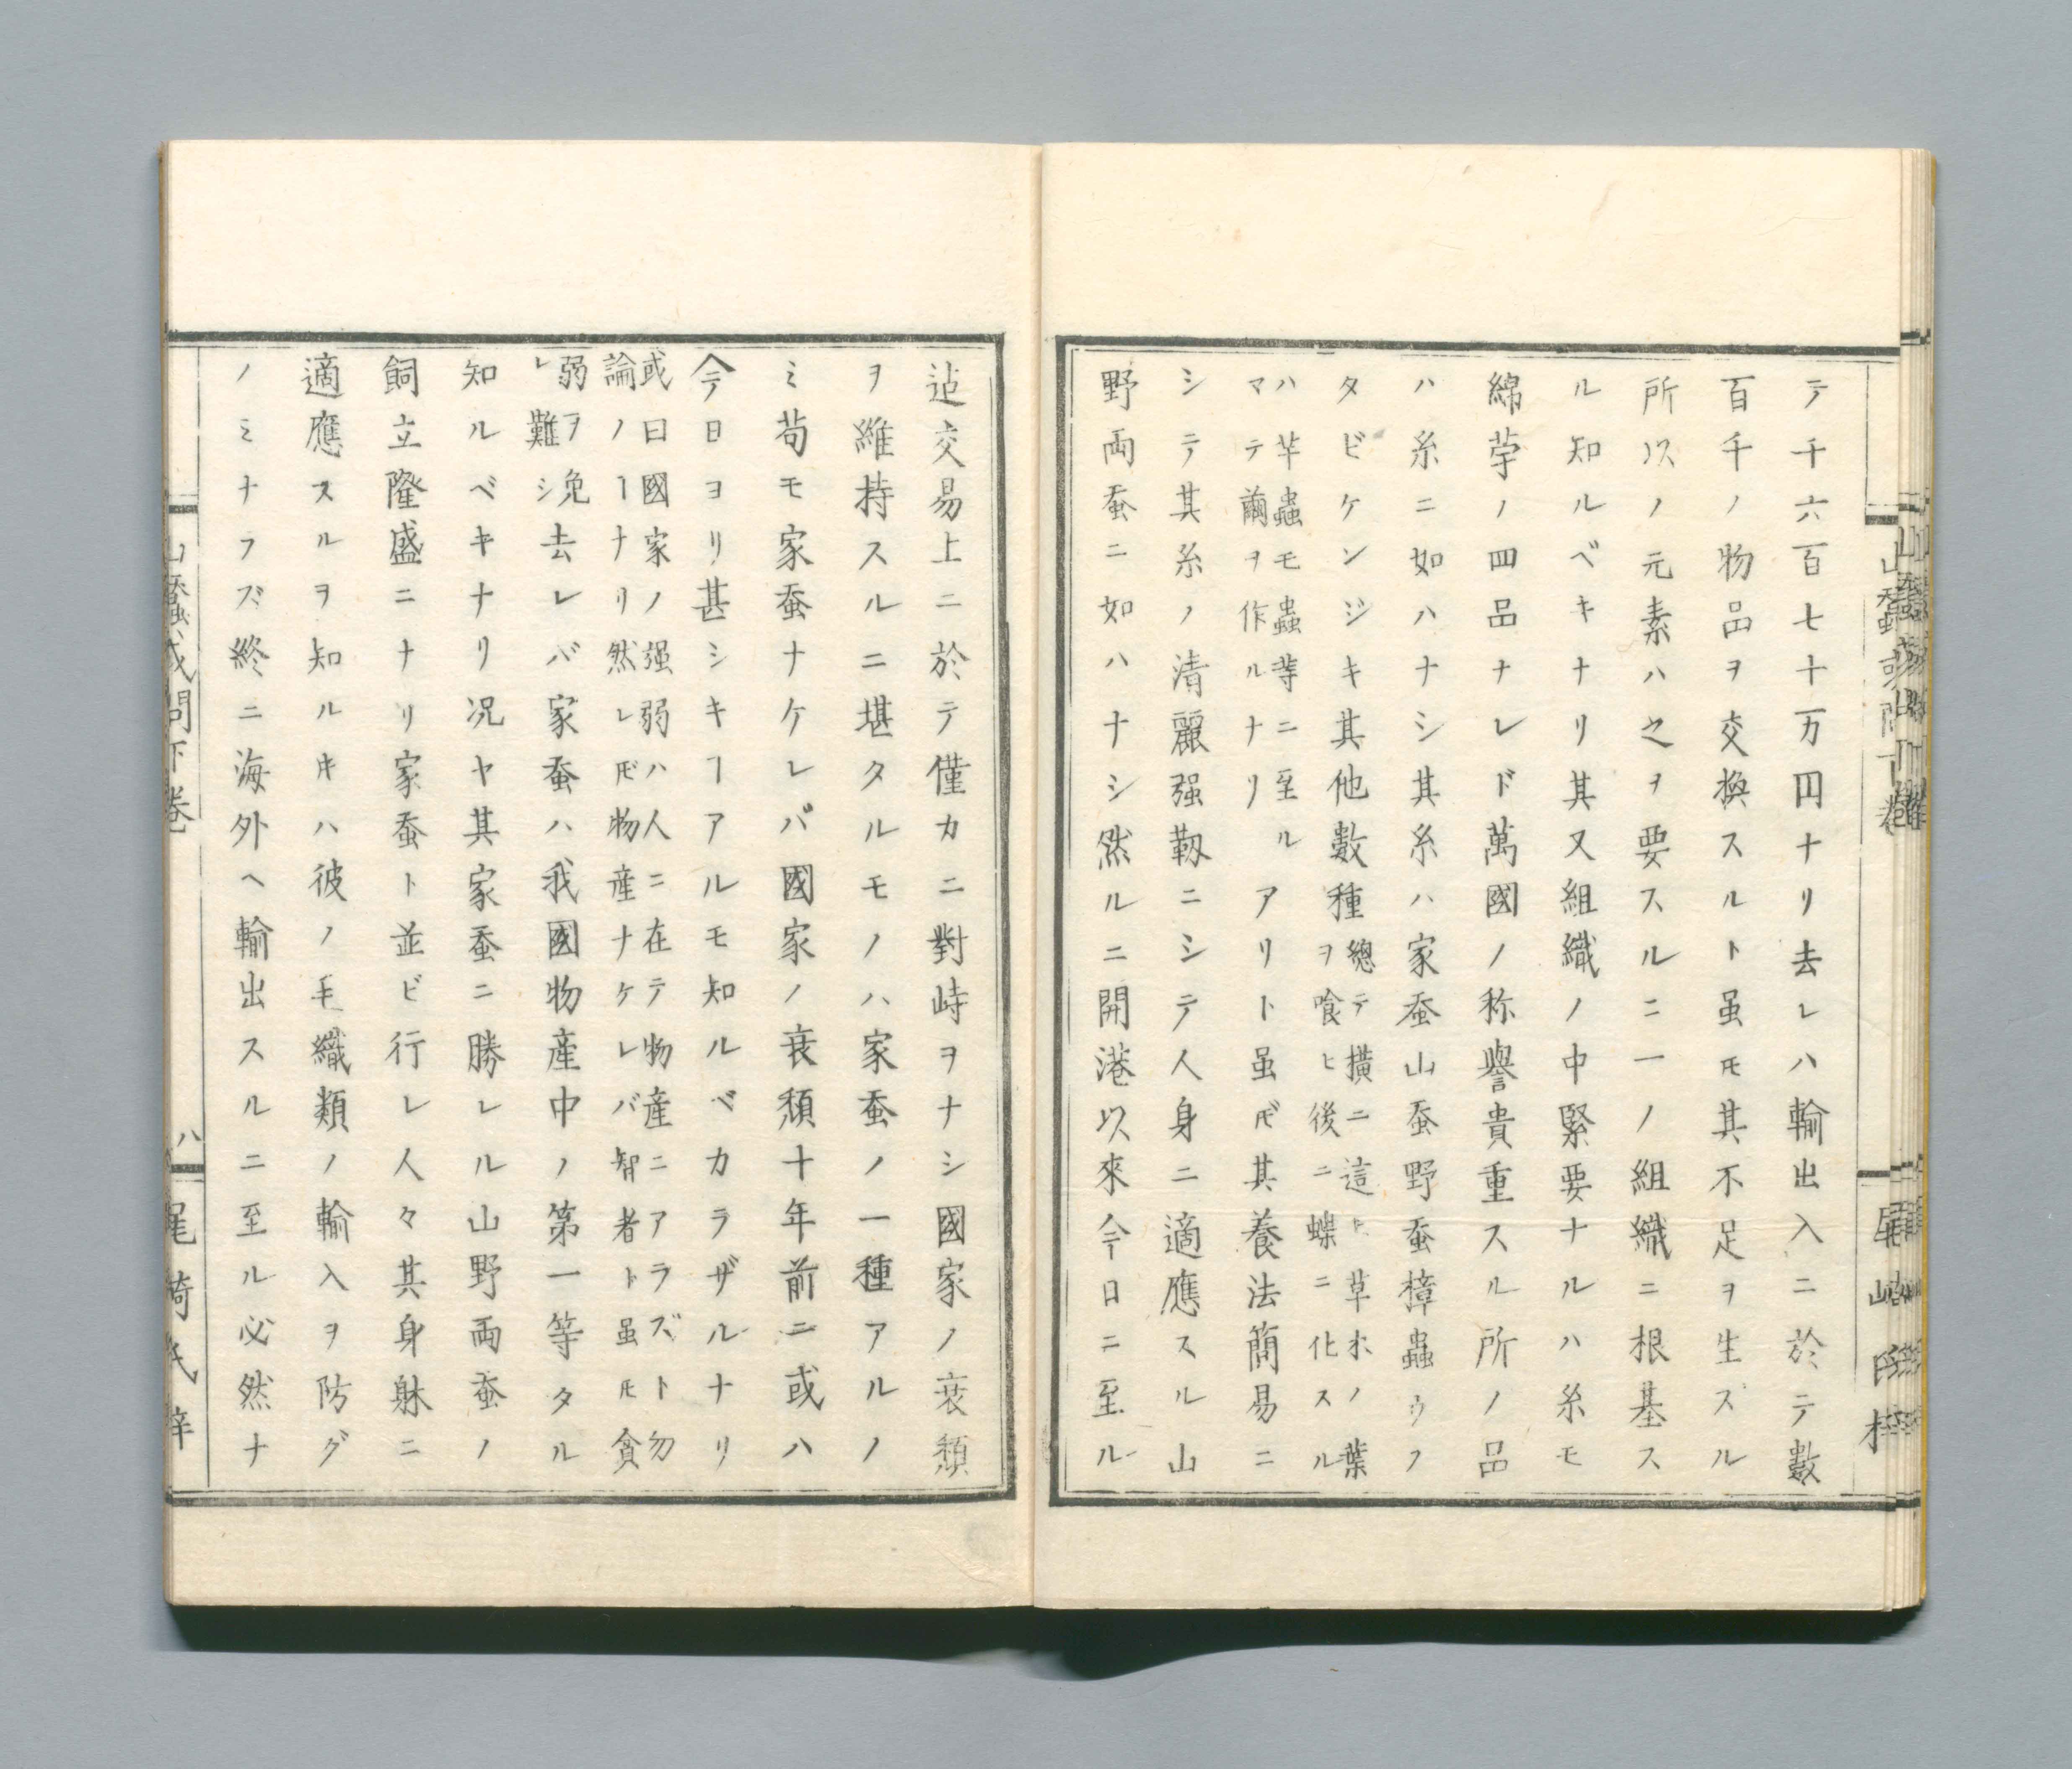 テ千六百七十万円ナリ去レハ輸出入ニ於テ數
百千ノ物品ヲ交換スルト虽𪜈其不足ヲ生ズル
所以ノ元素ハ之ヲ要スルニ一ノ組織ニ根基ス
ル知ルベキナリ其又組織ノ中緊要ナルハ糸モ
綿苧ノ四品ナレド萬國ノ称譽貴重スル所ノ品
ハ糸ニ如ハナシ其糸ハ家蚕山蚕野蚕樟蟲クフ
タビケンジキ其他數種
總テ横ニ這ヒ草木ノ葉
ヲ喰ヒ後ニ蝶ニ化スル
ハ芋蟲モ蟲等ニ至ル
マテ繭ヲ作ルナリ
アリト虽𪜈其養法簡易ニ
シテ其糸ノ清麗强靱ニシテ人身ニ適應スル山
野両蚕ニ如ハナシ然ルニ開港以來今日ニ至ル
迠交易上ニ於テ僅カニ對峙ヲナシ國家ノ衰頽
ヲ維持スルニ堪タルモノハ家蚕ノ一種アルノ
ミ苟モ家蚕ナケレバ國家ノ衰頽十年前ニ或ハ
今日ヨリ甚シキヿアルモ知ルベカラザルナリ
或曰國家ノ强弱ハ人ニ在テ物産ニアラズト勿
論ノヿナリ然レ𪜈物産ナケレバ智者ト虽𪜈貧
弱ヲ免
レ難シ
去レバ家蚕ハ我國物産中ノ第一等タル
知ルベキナリ况ヤ其家蚕ニ勝レル山野両蚕ノ
飼立隆盛ニナリ家蚕ト並ビ行レ人々其身躰ニ
適應スルヲ知ルキハ彼ノ毛織類ノ輸入ヲ防グ
ノミナラズ終ニ海外ヘ輸出スルニ至ル必然ナ
山蠶或問下巻
八
尾崎氏梓